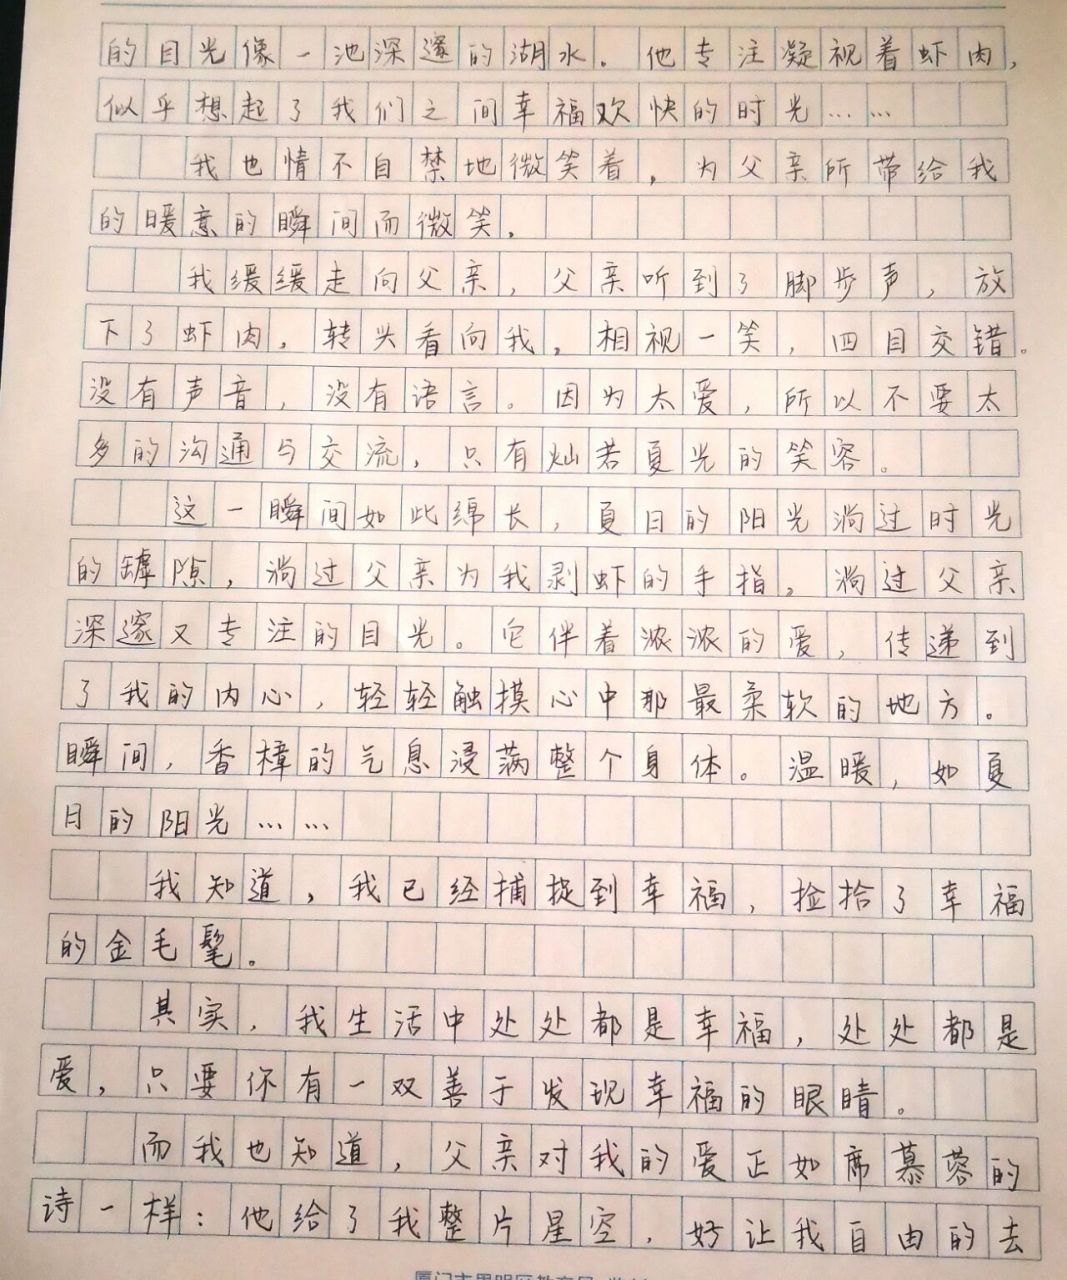 的目光像一池深邃的湖水。他专注凝视着虾肉，
似乎想起了我们之间幸福欢快的时光……
我也情不自禁地微笑着，为父亲所带给我
的暖意的瞬间而微笑。
我缓缓走向父亲，父亲听到了脚步声，放
下了虾肉，转头看向我，相视一笑，四目交错。
没有声音，没有语言。因为太爱，所以不要太
多的沟通与交流，只有灿若夏光的笑容。
这一瞬间如此绵长，夏日的阳光淌过时光
的罅隙，淌过父亲为我剥虾的手指，淌过父亲
深邃又专注的目光。它伴着浓浓的爱，传递到
了我的内心，轻轻触摸心中那最柔软的地方。
瞬间，香樟的气息浸满整个身体。温暖，如夏
日的阳光……
我知道，我已经捕捉到幸福，捡拾了幸福
的金毛髦。
其实，我生活中处处都是幸福，处处都是
爱，只要你有一双善于发现幸福的眼睛。
而我也知道，父亲对我的爱正如席慕蓉的
诗一样：他给了我整片星空，好让我自由的去